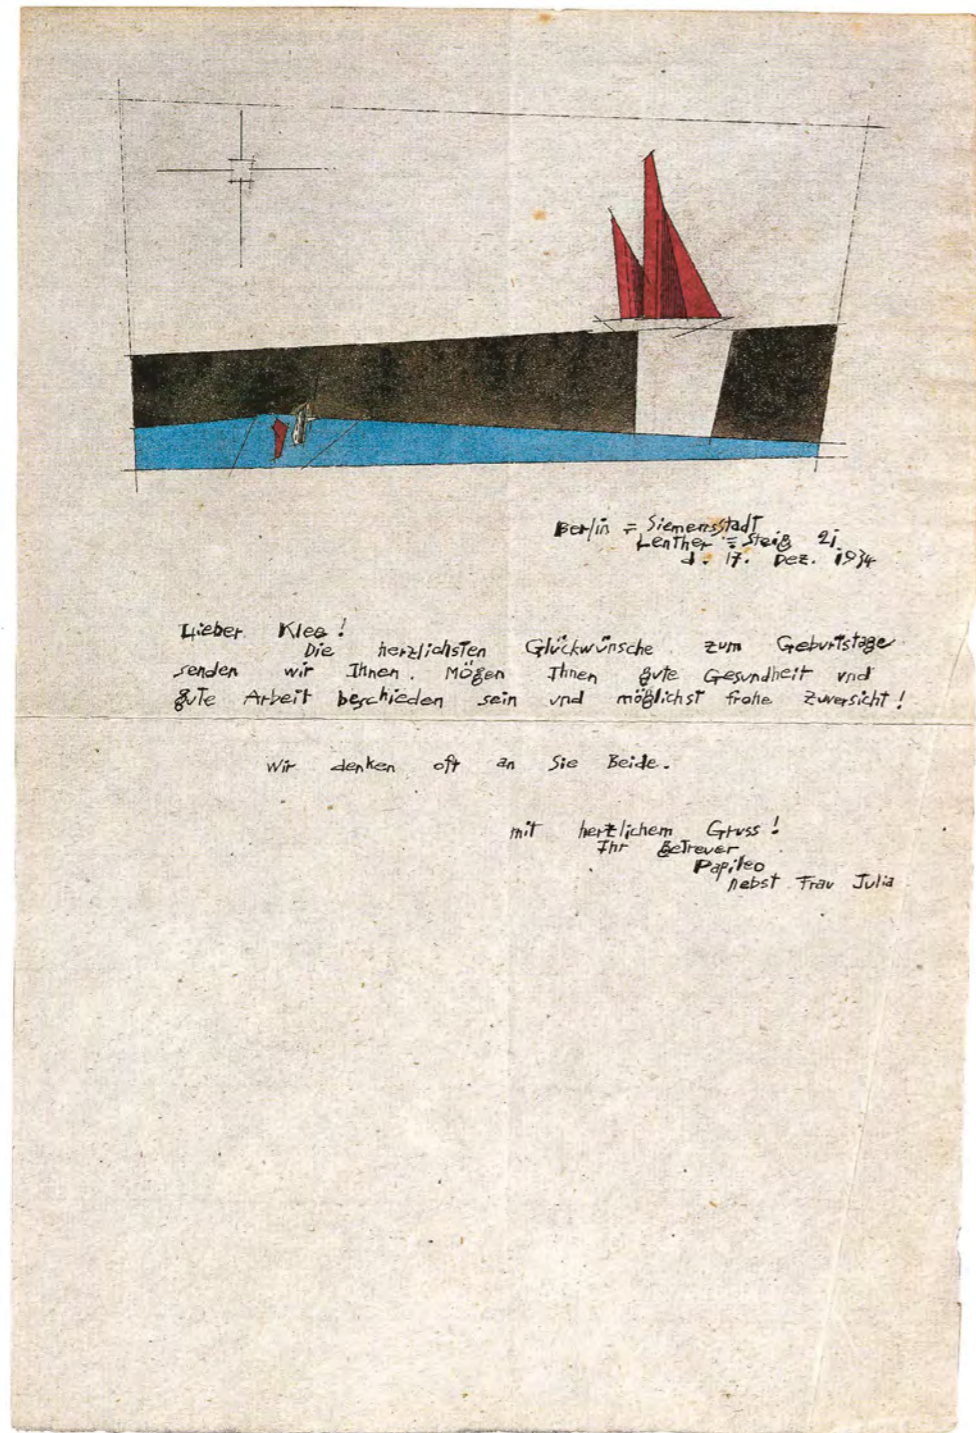 Berlin = Siemensstadt
Lenther = Steig 21
d. 17. Dez. 1934
Lieber Klee!
Die herzlichsten Glückwünsche zum Geburtstage
senden wir Ihnen. Mögen Ihnen gute Gesundheit und
gute Arbeit beschieden sein und möglichst frohe Zuversicht!
Wir denken oft an Sie Beide.
mit herzlichem Gruss!
Ihr getreuer
Papileo
nebst Frau Julia